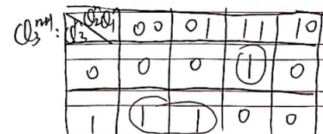 Q₃ⁿ⁺¹: Q₃ Q₂Q₁ 00 01 11 10
0 0 0 1 0
1 1 1 0 0